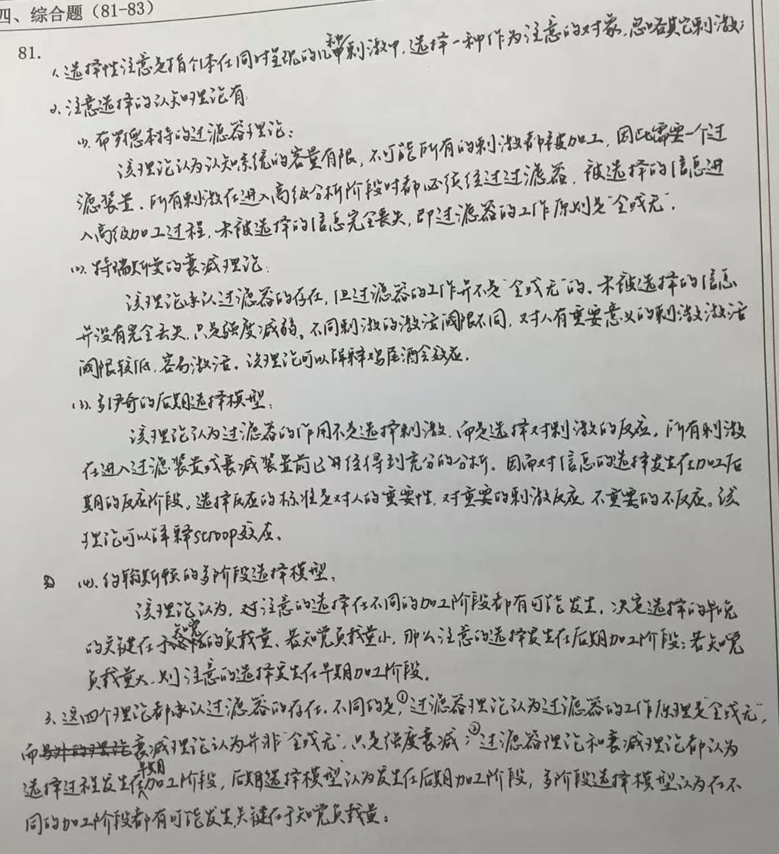 四、综合题（81-83）
81.
1. 选择性注意是指个体在同时呈现的几种刺激中，选择一种作为注意的对象，忽略其它刺激；
2. 注意选择的认知理论有
(1). 布罗德本特的过滤器理论：
该理论认为认知系统的容量有限，不可能所有的刺激都被加工，因此需要一个过
滤装置，所有刺激在进入高级分析阶段时都必须经过过滤器，被选择的信息进
入高级加工过程，未被选择的信息完全丧失，即过滤器的工作原则是“全或无”。
(2). 特瑞斯曼的衰减理论：
该理论承认过滤器的存在，但过滤器的工作并不是“全或无”的，未被选择的信息
并没有完全丢失，只是强度减弱。不同刺激的激活阈限不同，对人有重要意义的刺激激活
阈限较低，容易激活。该理论可以解释鸡尾酒会效应。
(3). 多伊奇的后期选择模型：
该理论认为过滤器的作用不是选择刺激，而是选择对刺激的反应。所有刺激
在进入过滤装置或衰减装置前已经得到充分的分析。因而对信息的选择发生在加工后
期的反应阶段。选择反应的标准是对人的重要性，对重要的刺激反应，不重要的不反应。该
理论可以解释scroop效应。
(4). 约翰斯顿的多阶段选择模型：
该理论认为，对注意的选择在不同的加工阶段都有可能发生，决定选择的早晚
的关键在于知觉的负载量、若知觉负载量小，那么注意的选择发生在后期加工阶段；若知觉
负载量大，则注意的选择发生在早期加工阶段。
3. 这四个理论都承认过滤器的存在，不同的是，①过滤器理论认为过滤器的工作原理是“全或无”，
而衰减理论认为并非“全或无”，只是强度衰减；②过滤器理论和衰减理论都认为
选择过程发生在早期加工阶段，后期选择模型认为发生在后期加工阶段，多阶段选择模型认为在不
同的加工阶段都有可能发生，关键在于知觉负载量。